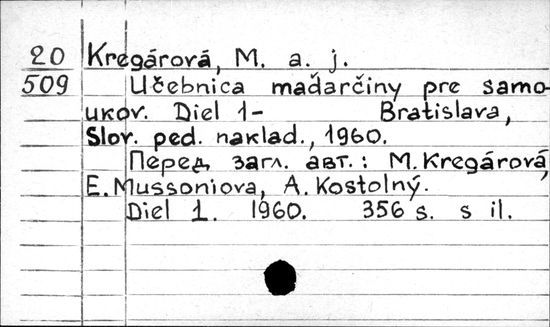 20 Kregárová, M. a. j.
509 Učebnica maďarčiny pre samo-
ukov. Diel 1- Bratislava,
Slov. ped. naklad., 1960.
Перед загл. авт.: M. Kregárová,
E. Mussoniova, A. Kostolný.
Diel 1. 1960. 356 s. s il.